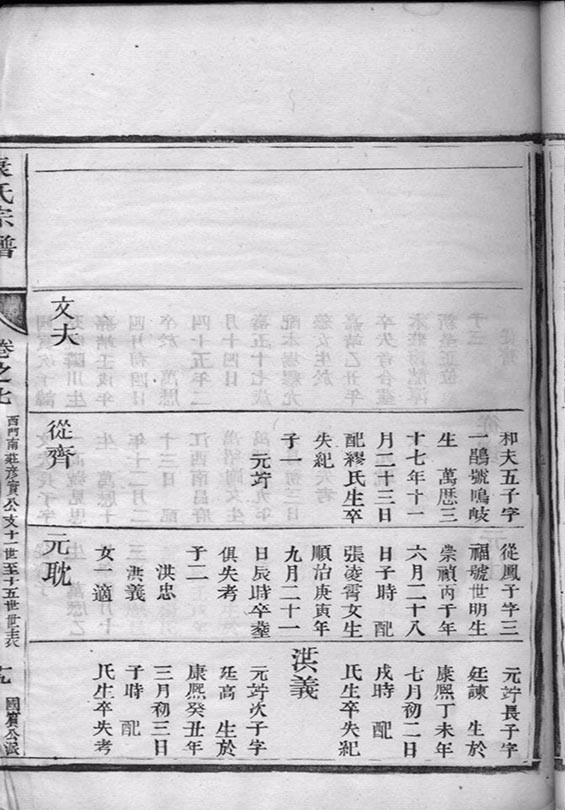 文夫
和夫五子字
一鵾號鳴岐
生 萬歷三
十七年十一
月二十三日
配繆氏生卒
失紀
子一
元竚
從齊
從鳳子字三
福號世明生
崇禎丙子年
六月二十八
日子時 配
張凌霄女生
順治庚寅年
九月二十一
日辰時卒塟
俱失考
子二
洪忠
洪義
女一適
元耽
元竚長子字
廷諫 生於
康熙丁未年
七月初二日
戌時 配
氏生卒失紀
洪義
元竚次子字
廷高 生於
康熙癸丑年
三月初三日
子時 配
氏生卒失考
袁氏宗譜
卷之七
西門南莊彥賓公支十一世至十五世世表
國賓公派